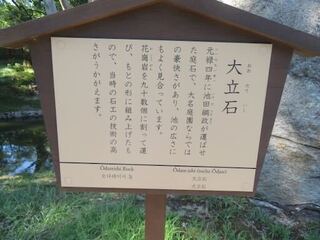 大立石
おお
だて
いし
元禄四年に池田綱政が運ばせ
た庭石で、大名庭園ならでは
の豪快さがあり、池の広さに
もよく見合っています。
花崗岩を九十数個に割って運
び、もとの形に組み上げたも
ので、当時の石工の技術の高
さがうかがえます。
Ōdateishi Rock
오다테이시 돌
Ōdate-ishi
大立石
大立石